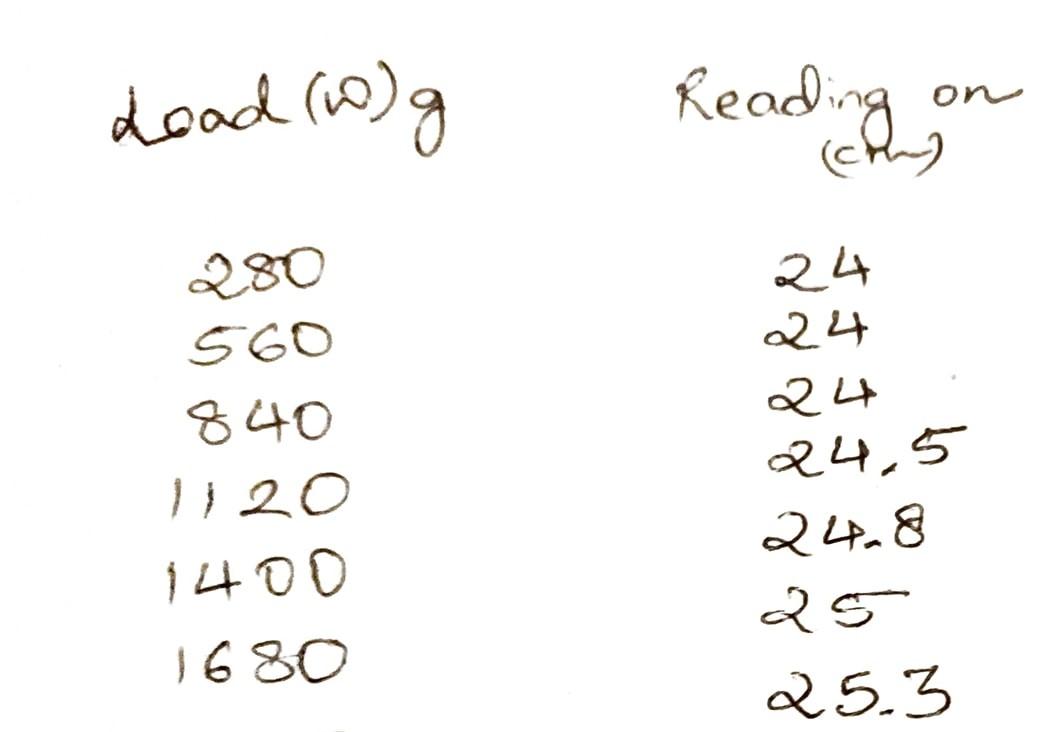 Load (W) g Reading on
(cm)
280 24
560 24
840 24
1120 24.5
1400 24.8
1680 25
25.3